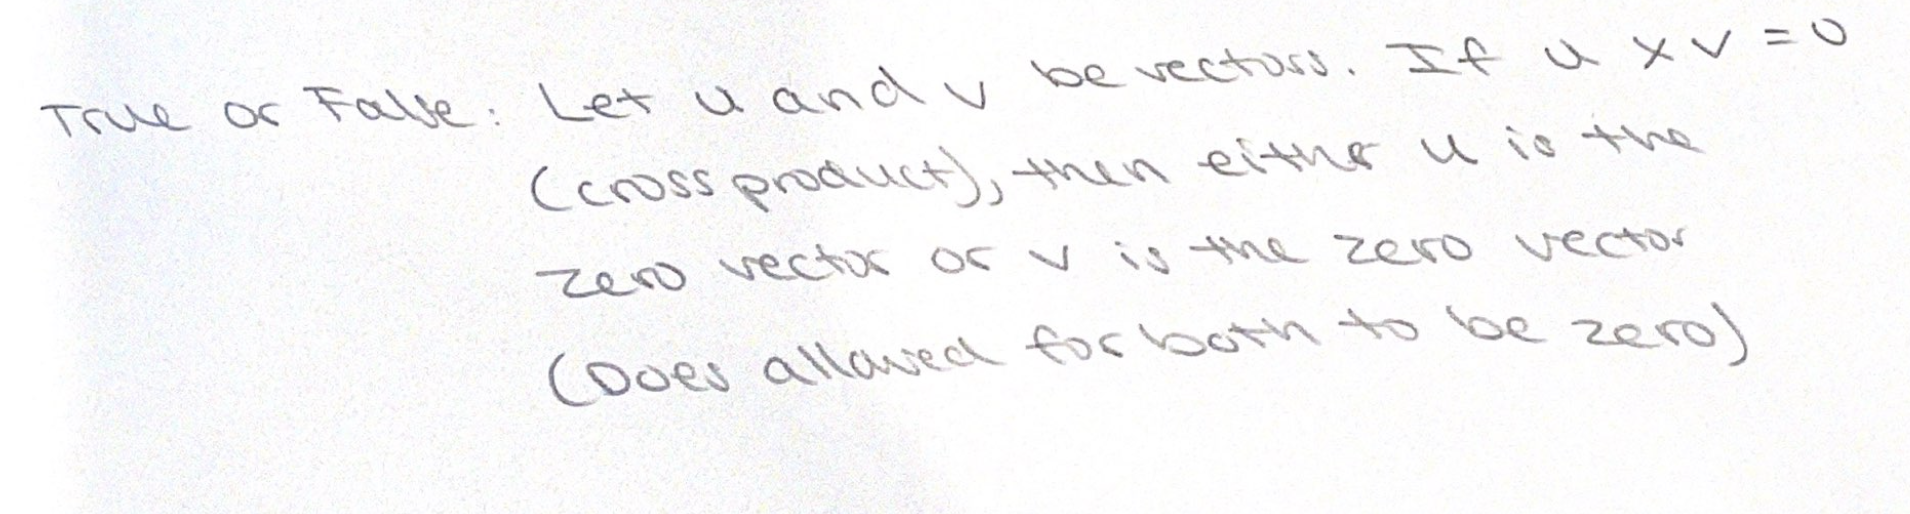 True or False: Let u and v be vectors. If u x v = 0
(cross product), then either u is the
zero vector or v is the zero vector
(Does allowed for both to be zero)